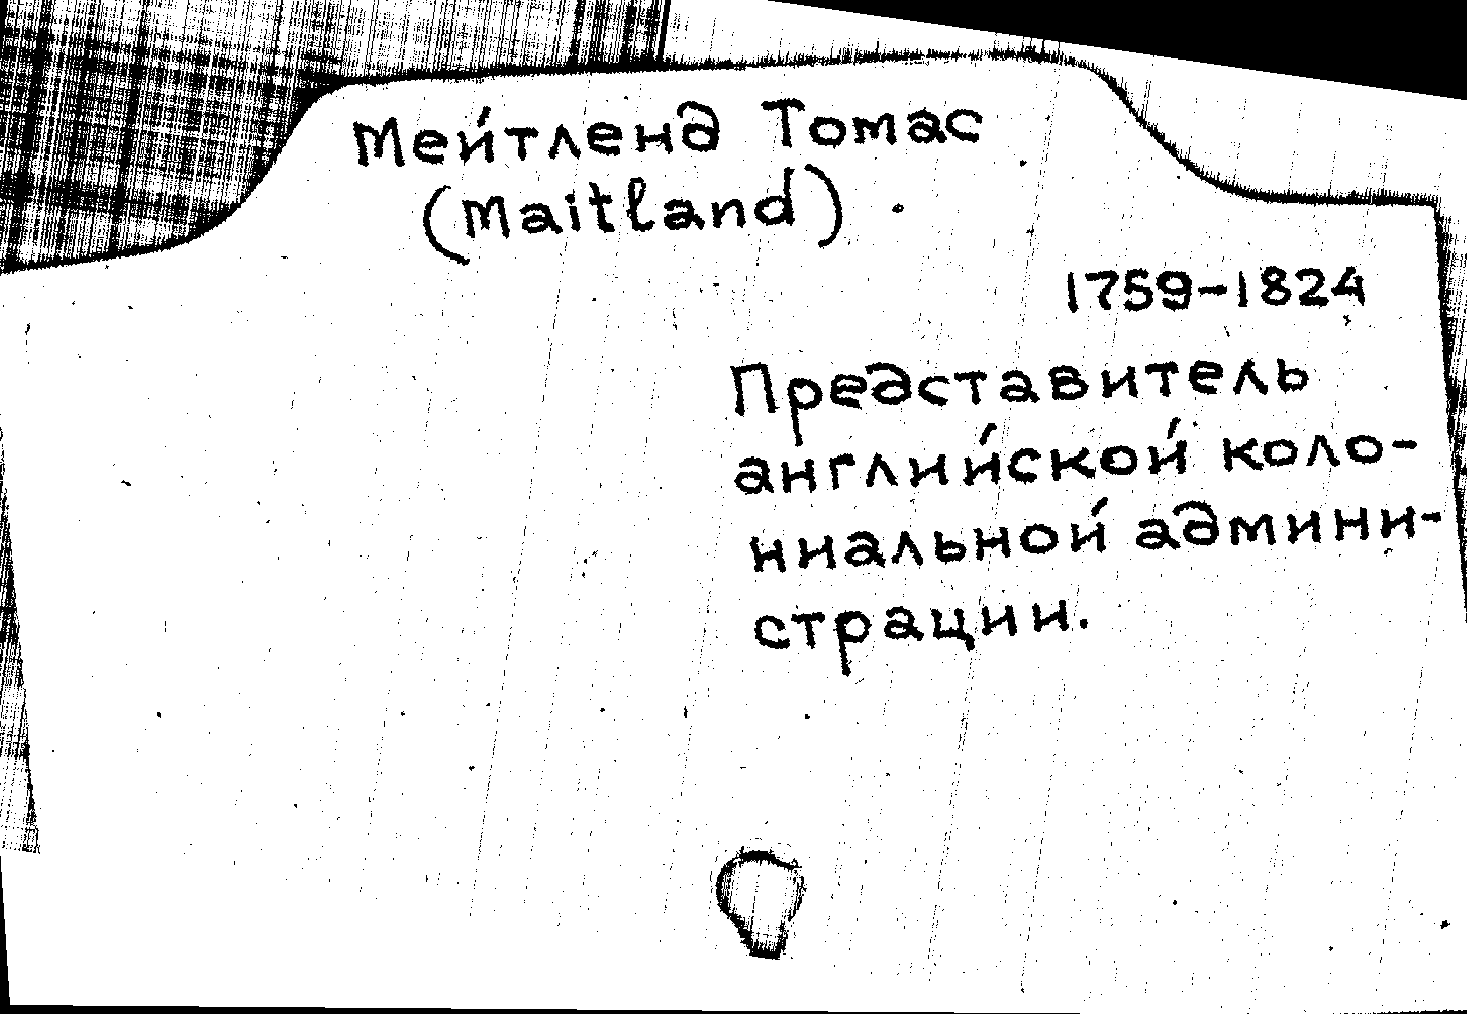 Мейтленд Томас
(Maitland).
1759-1824
Представитель
английской коло-
ниальной админи-
страции.